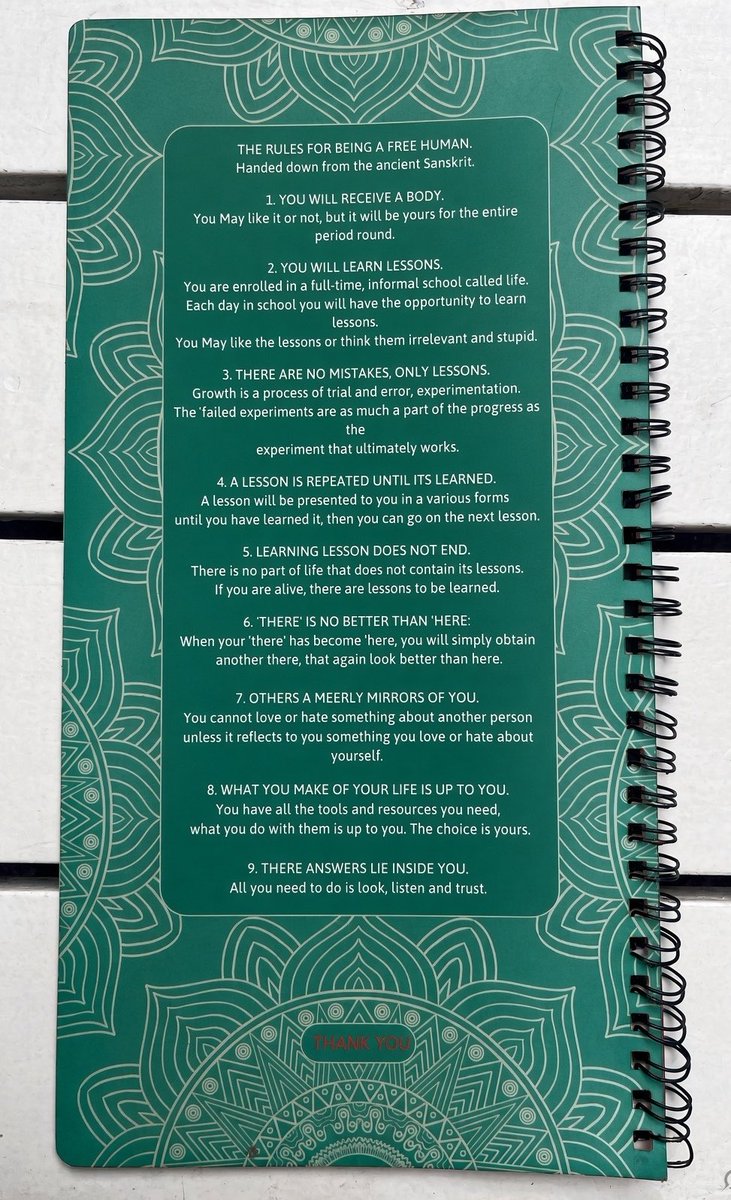 THE RULES FOR BEING A FREE HUMAN.
Handed down from the ancient Sanskrit.
1. YOU WILL RECEIVE A BODY.
You May like it or not, but it will be yours for the entire
period round.
2. YOU WILL LEARN LESSONS.
You are enrolled in a full-time, informal school called life.
Each day in school you will have the opportunity to learn
lessons.
You May like the lessons or think them irrelevant and stupid.
3. THERE ARE NO MISTAKES, ONLY LESSONS.
Growth is a process of trial and error, experimentation.
The 'failed experiments are as much a part of the progress as
the
experiment that ultimately works.
4. A LESSON IS REPEATED UNTIL ITS LEARNED.
A lesson will be presented to you in a various forms
until you have learned it, then you can go on the next lesson.
5. LEARNING LESSON DOES NOT END.
There is no part of life that does not contain its lessons.
If you are alive, there are lessons to be learned.
6. 'THERE' IS NO BETTER THAN 'HERE:
When your 'there' has become 'here, you will simply obtain
another there, that again look better than here.
7. OTHERS A MEERLY MIRRORS OF YOU.
You cannot love or hate something about another person
unless it reflects to you something you love or hate about
yourself.
8. WHAT YOU MAKE OF YOUR LIFE IS UP TO YOU.
You have all the tools and resources you need,
what you do with them is up to you. The choice is yours.
9. THERE ANSWERS LIE INSIDE YOU.
All you need to do is look, listen and trust.
THANK YOU